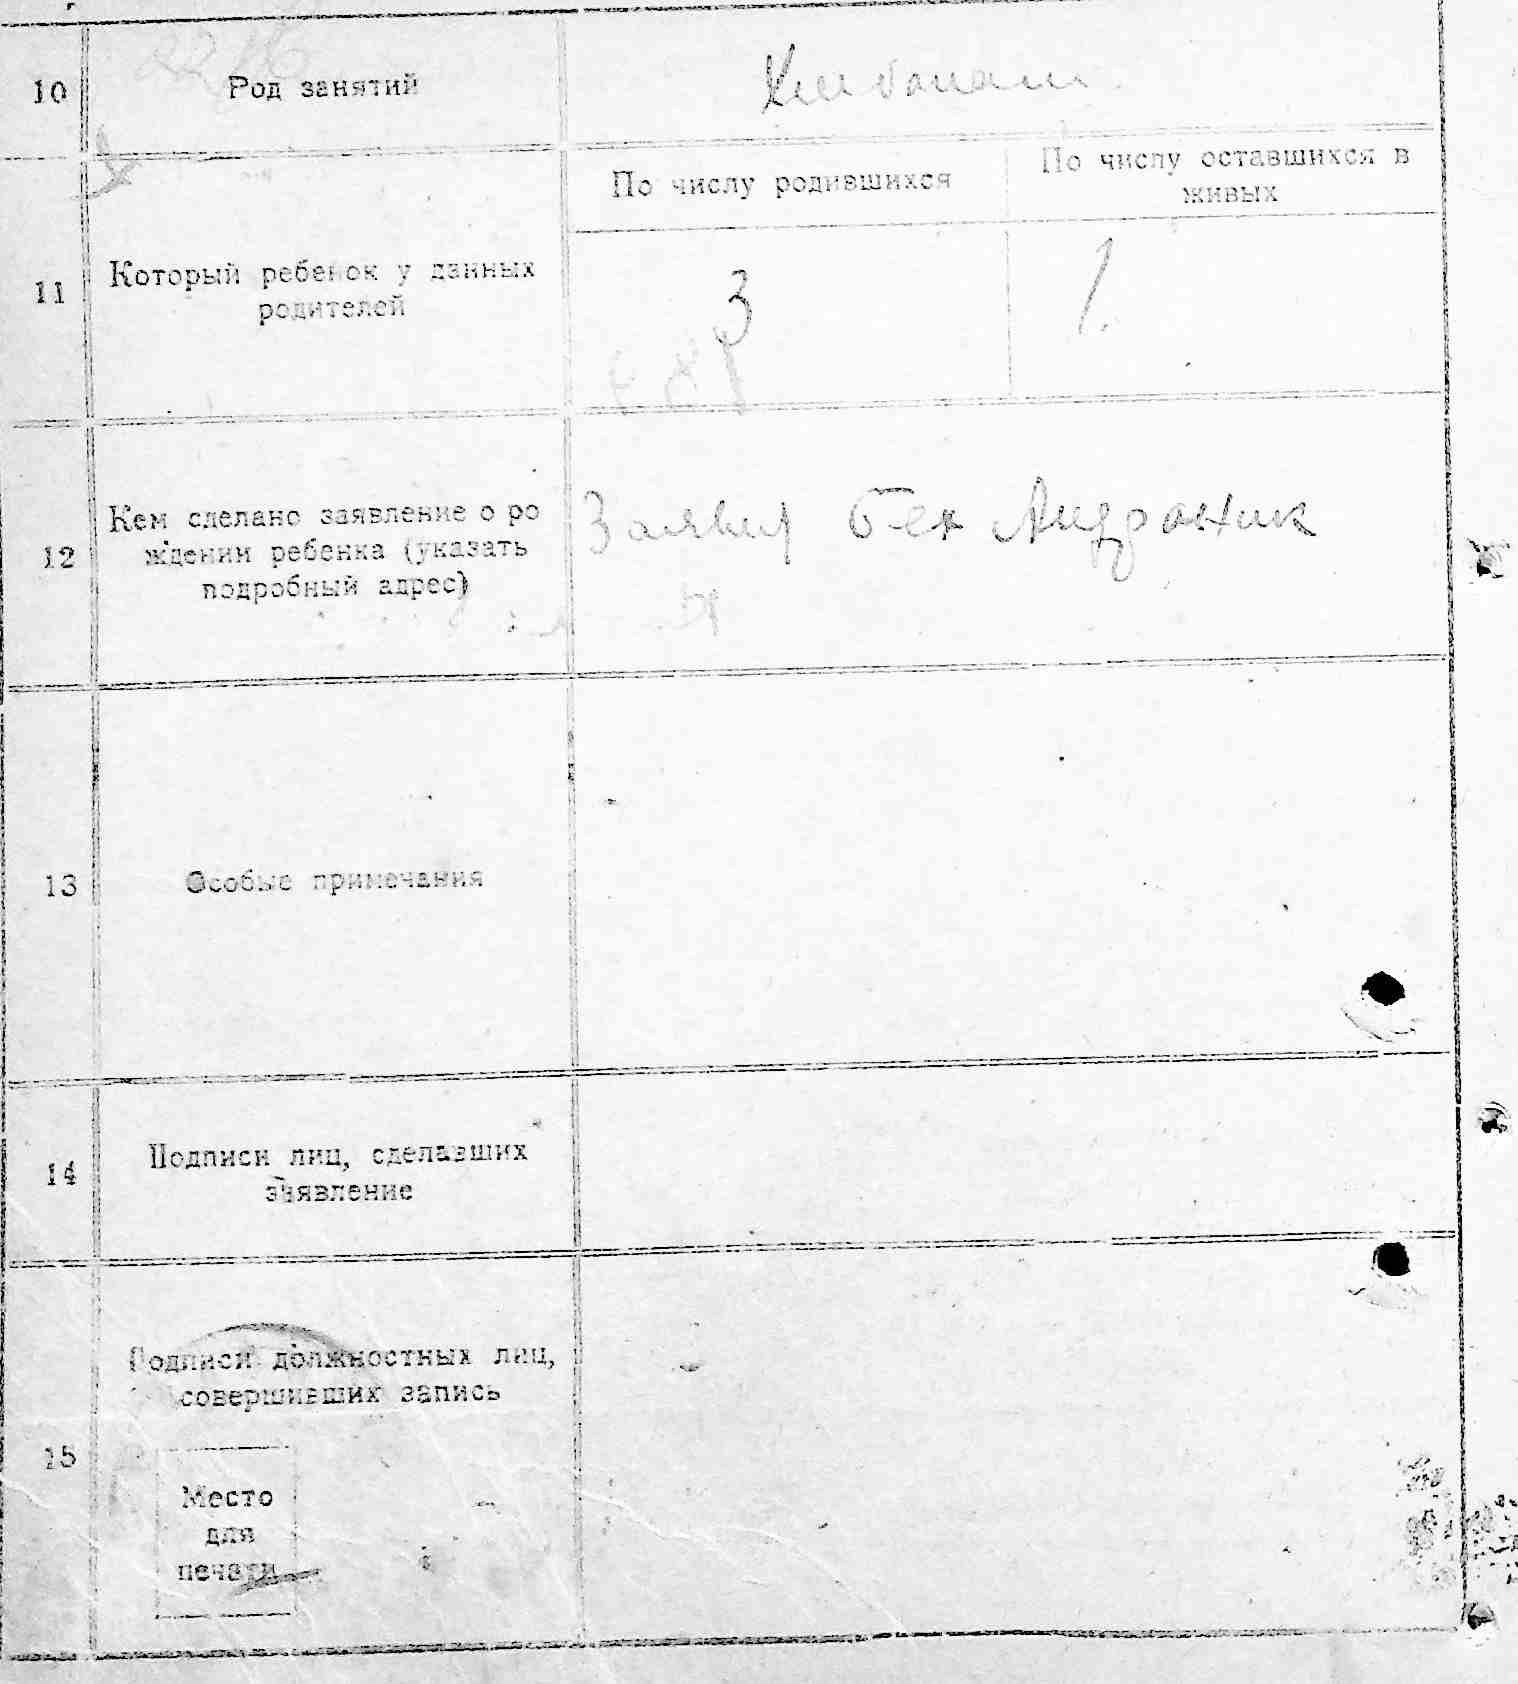 10 Род занятий
По числу родившихся
По числу оставшихся в
живых
11 Который ребенок у данных
родителей
3
1.
12 Кем сделано заявление о ро
ждении ребенка (указать
подробный адрес)
Заявил Бек Андроник
13 Особые примечания
14 Подписи лиц, сделавших
заявление
Подписи должностных лиц,
совершивших запись
15
Место
для
печати